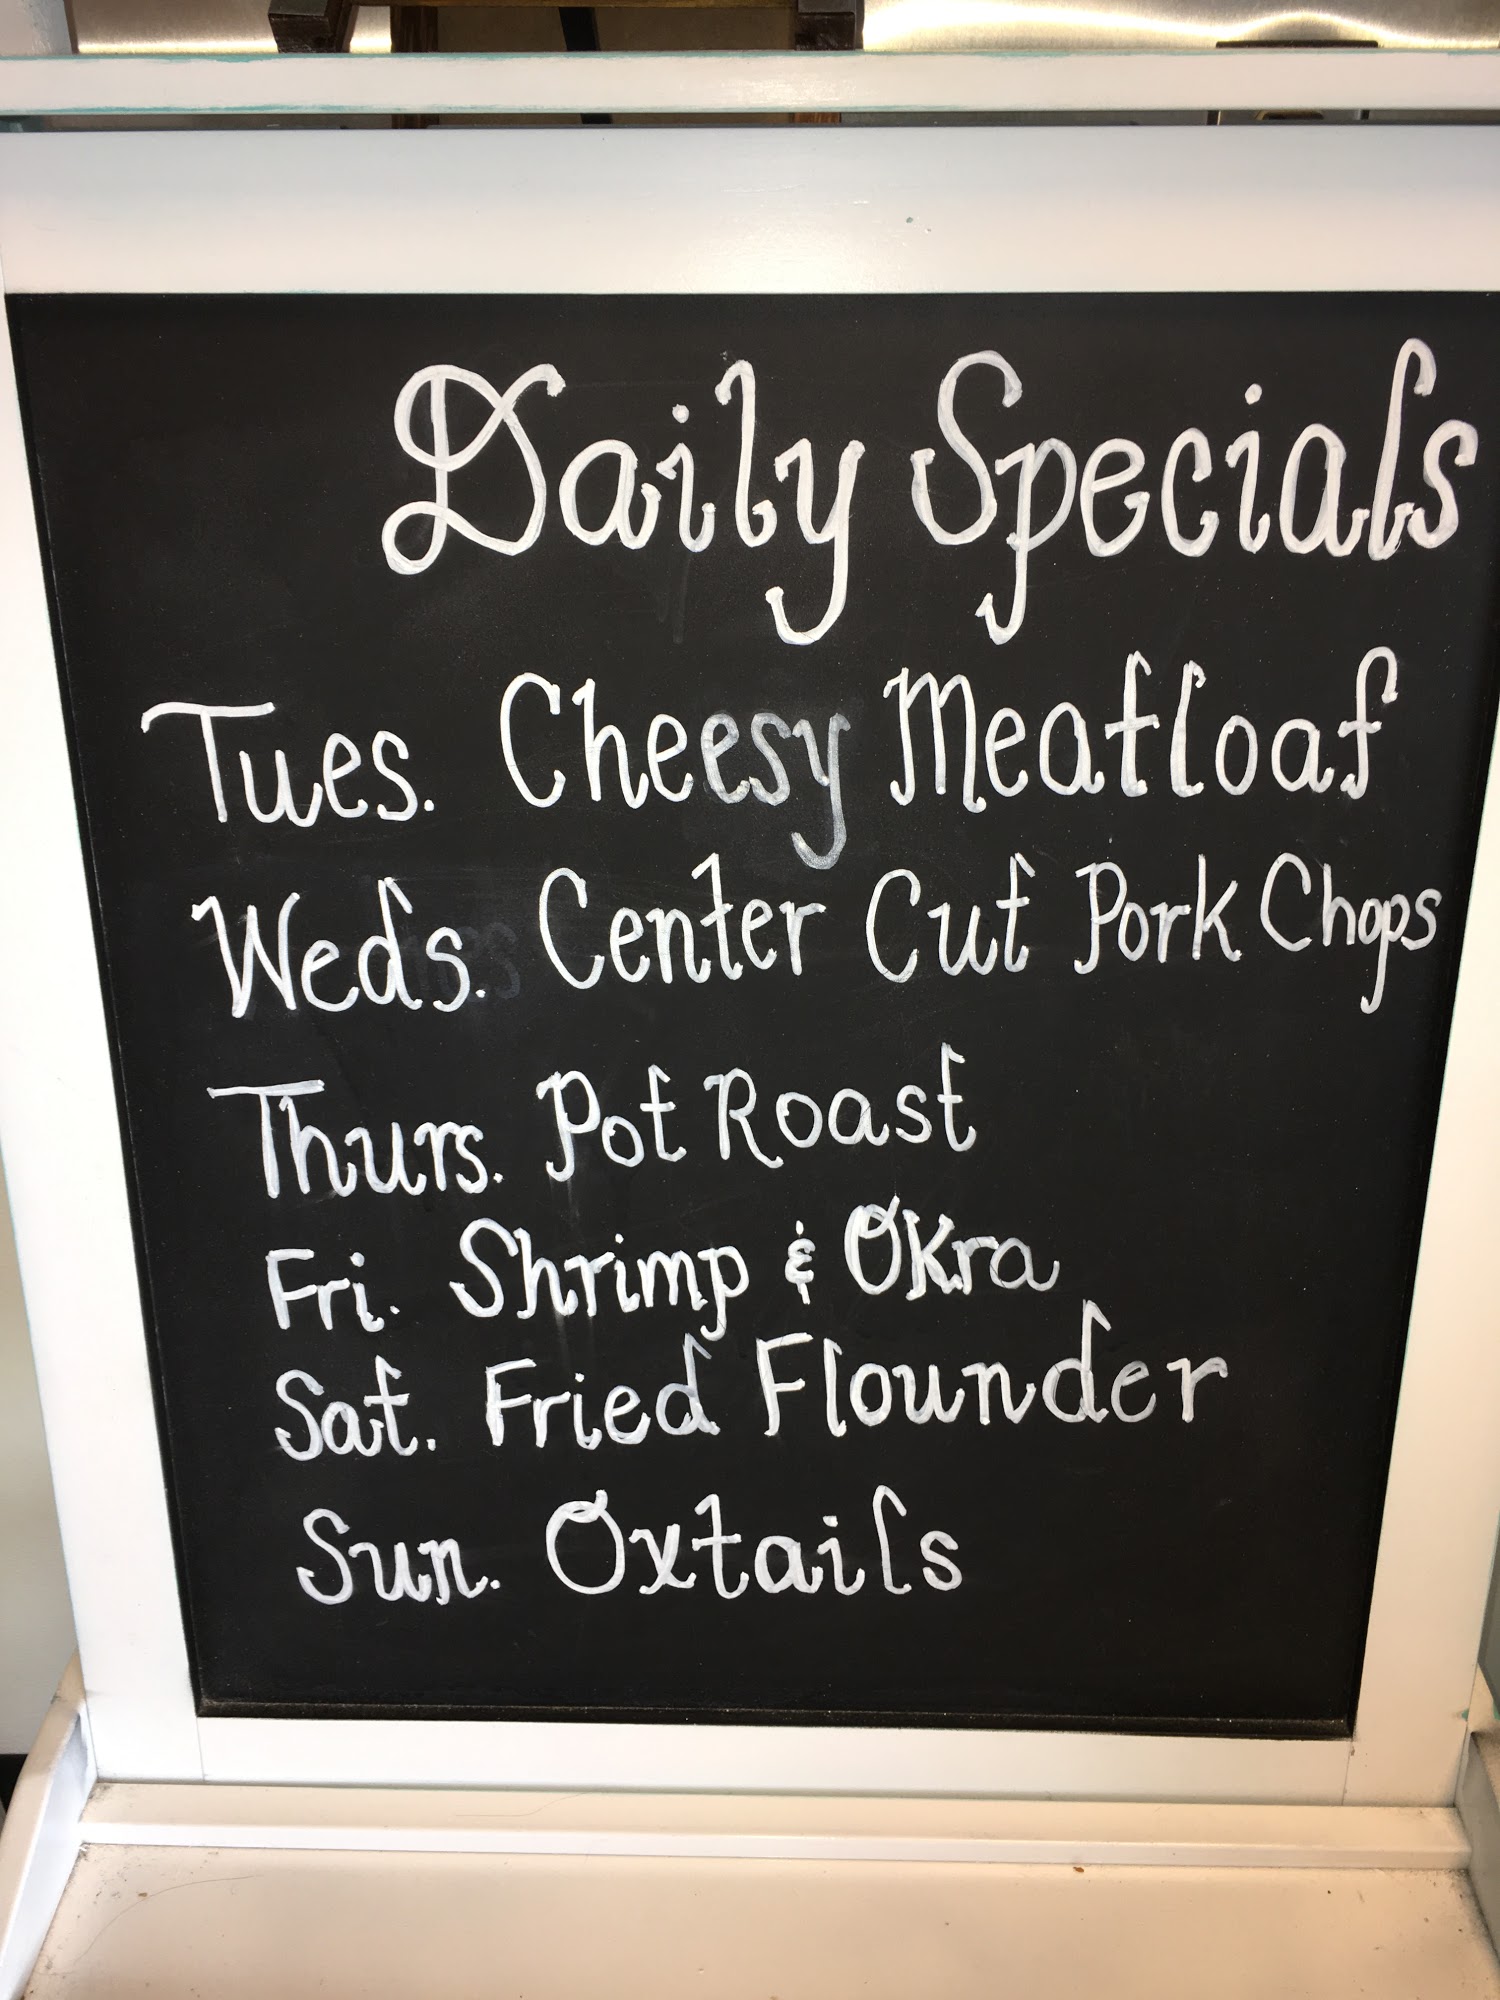 Daily Specials
Tues. Cheesy Meatloaf
Weds. Center Cut Pork Chops
Thurs. Pot Roast
Fri. Shrimp & Okra
Sat. Fried Flounder
Sun. Oxtails